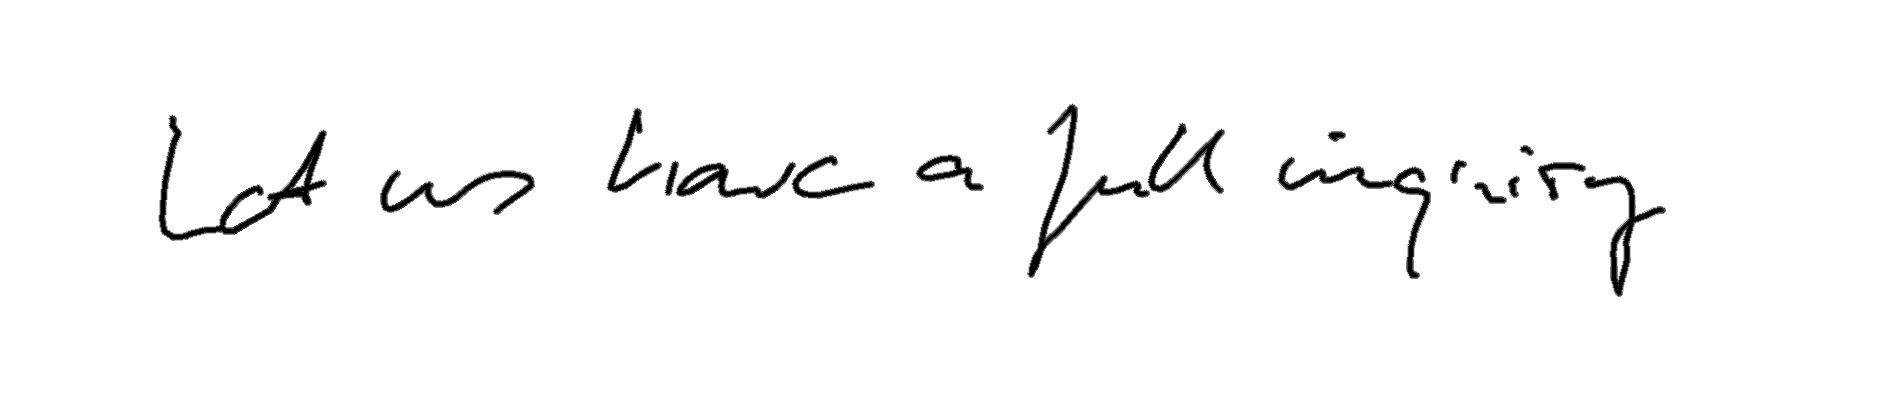 Let us have a full inquiry